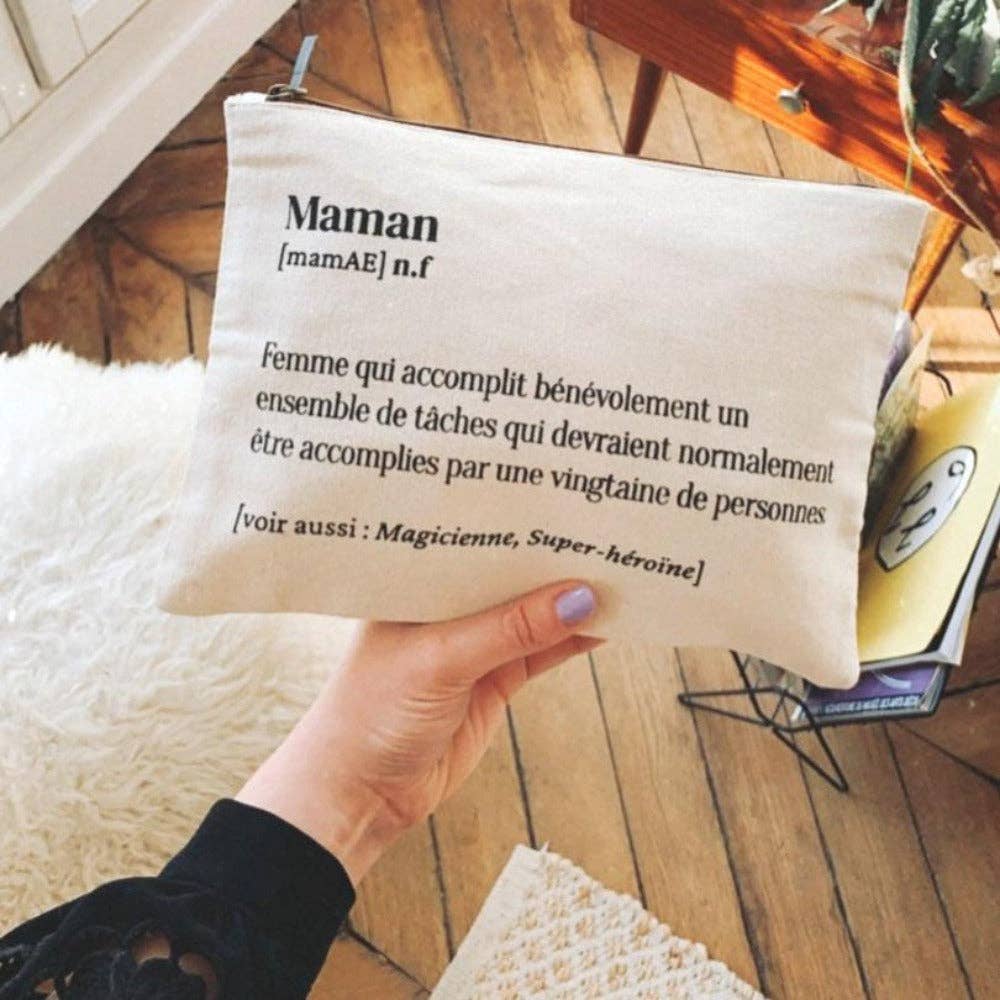 Maman
[mamAE] n.f
Femme qui accomplit bénévolement un
ensemble de tâches qui devraient normalement
être accomplies par une vingtaine de personnes
[voir aussi : Magicienne, Super-héroïne]